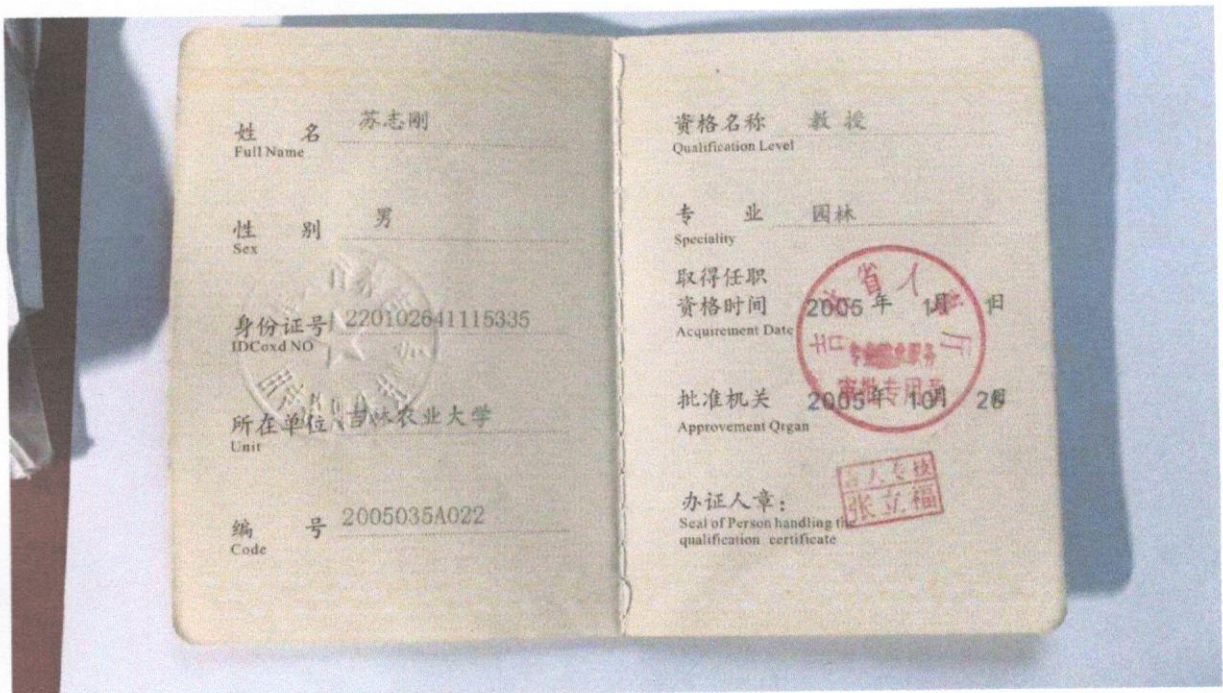 姓 名 苏志刚
Full Name
性 别 男
Sex
身份证号 220102641115335
IDCoxd NO
所在单位 吉林农业大学
Unit
编 号 2005035A022
Code
资格名称 教授
Qualification Level
专 业 园林
Speciality
取得任职
资格时间 2005 年 月 日
Acquirement Date
批准机关 2005年 10月 26日
Approvement Qrgan
审批专用章
办证人章：
张立福
Seal of Person handling the
qualification certificate